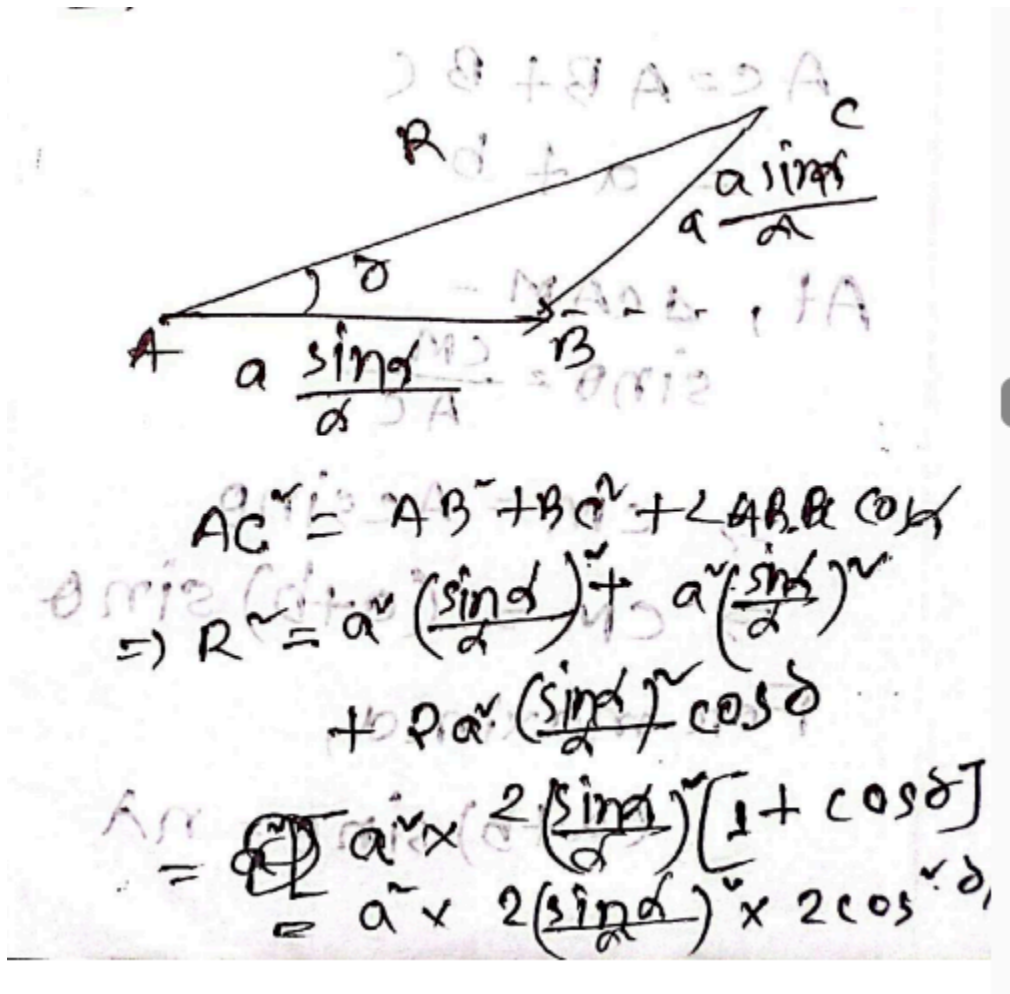 R
C
a sinα/α
δ
A
B
a sinα/α
AC² = AB² + BC² + 2AB.BC cos
=> R² = a² (sinα/α)² + a² (sinα/α)²
+ 2a² (sinα/α)² cosδ
= a² x 2 (sinα/α)² [1 + cosδ]
= a² x 2 (sinα/α)² x 2cos² δ/